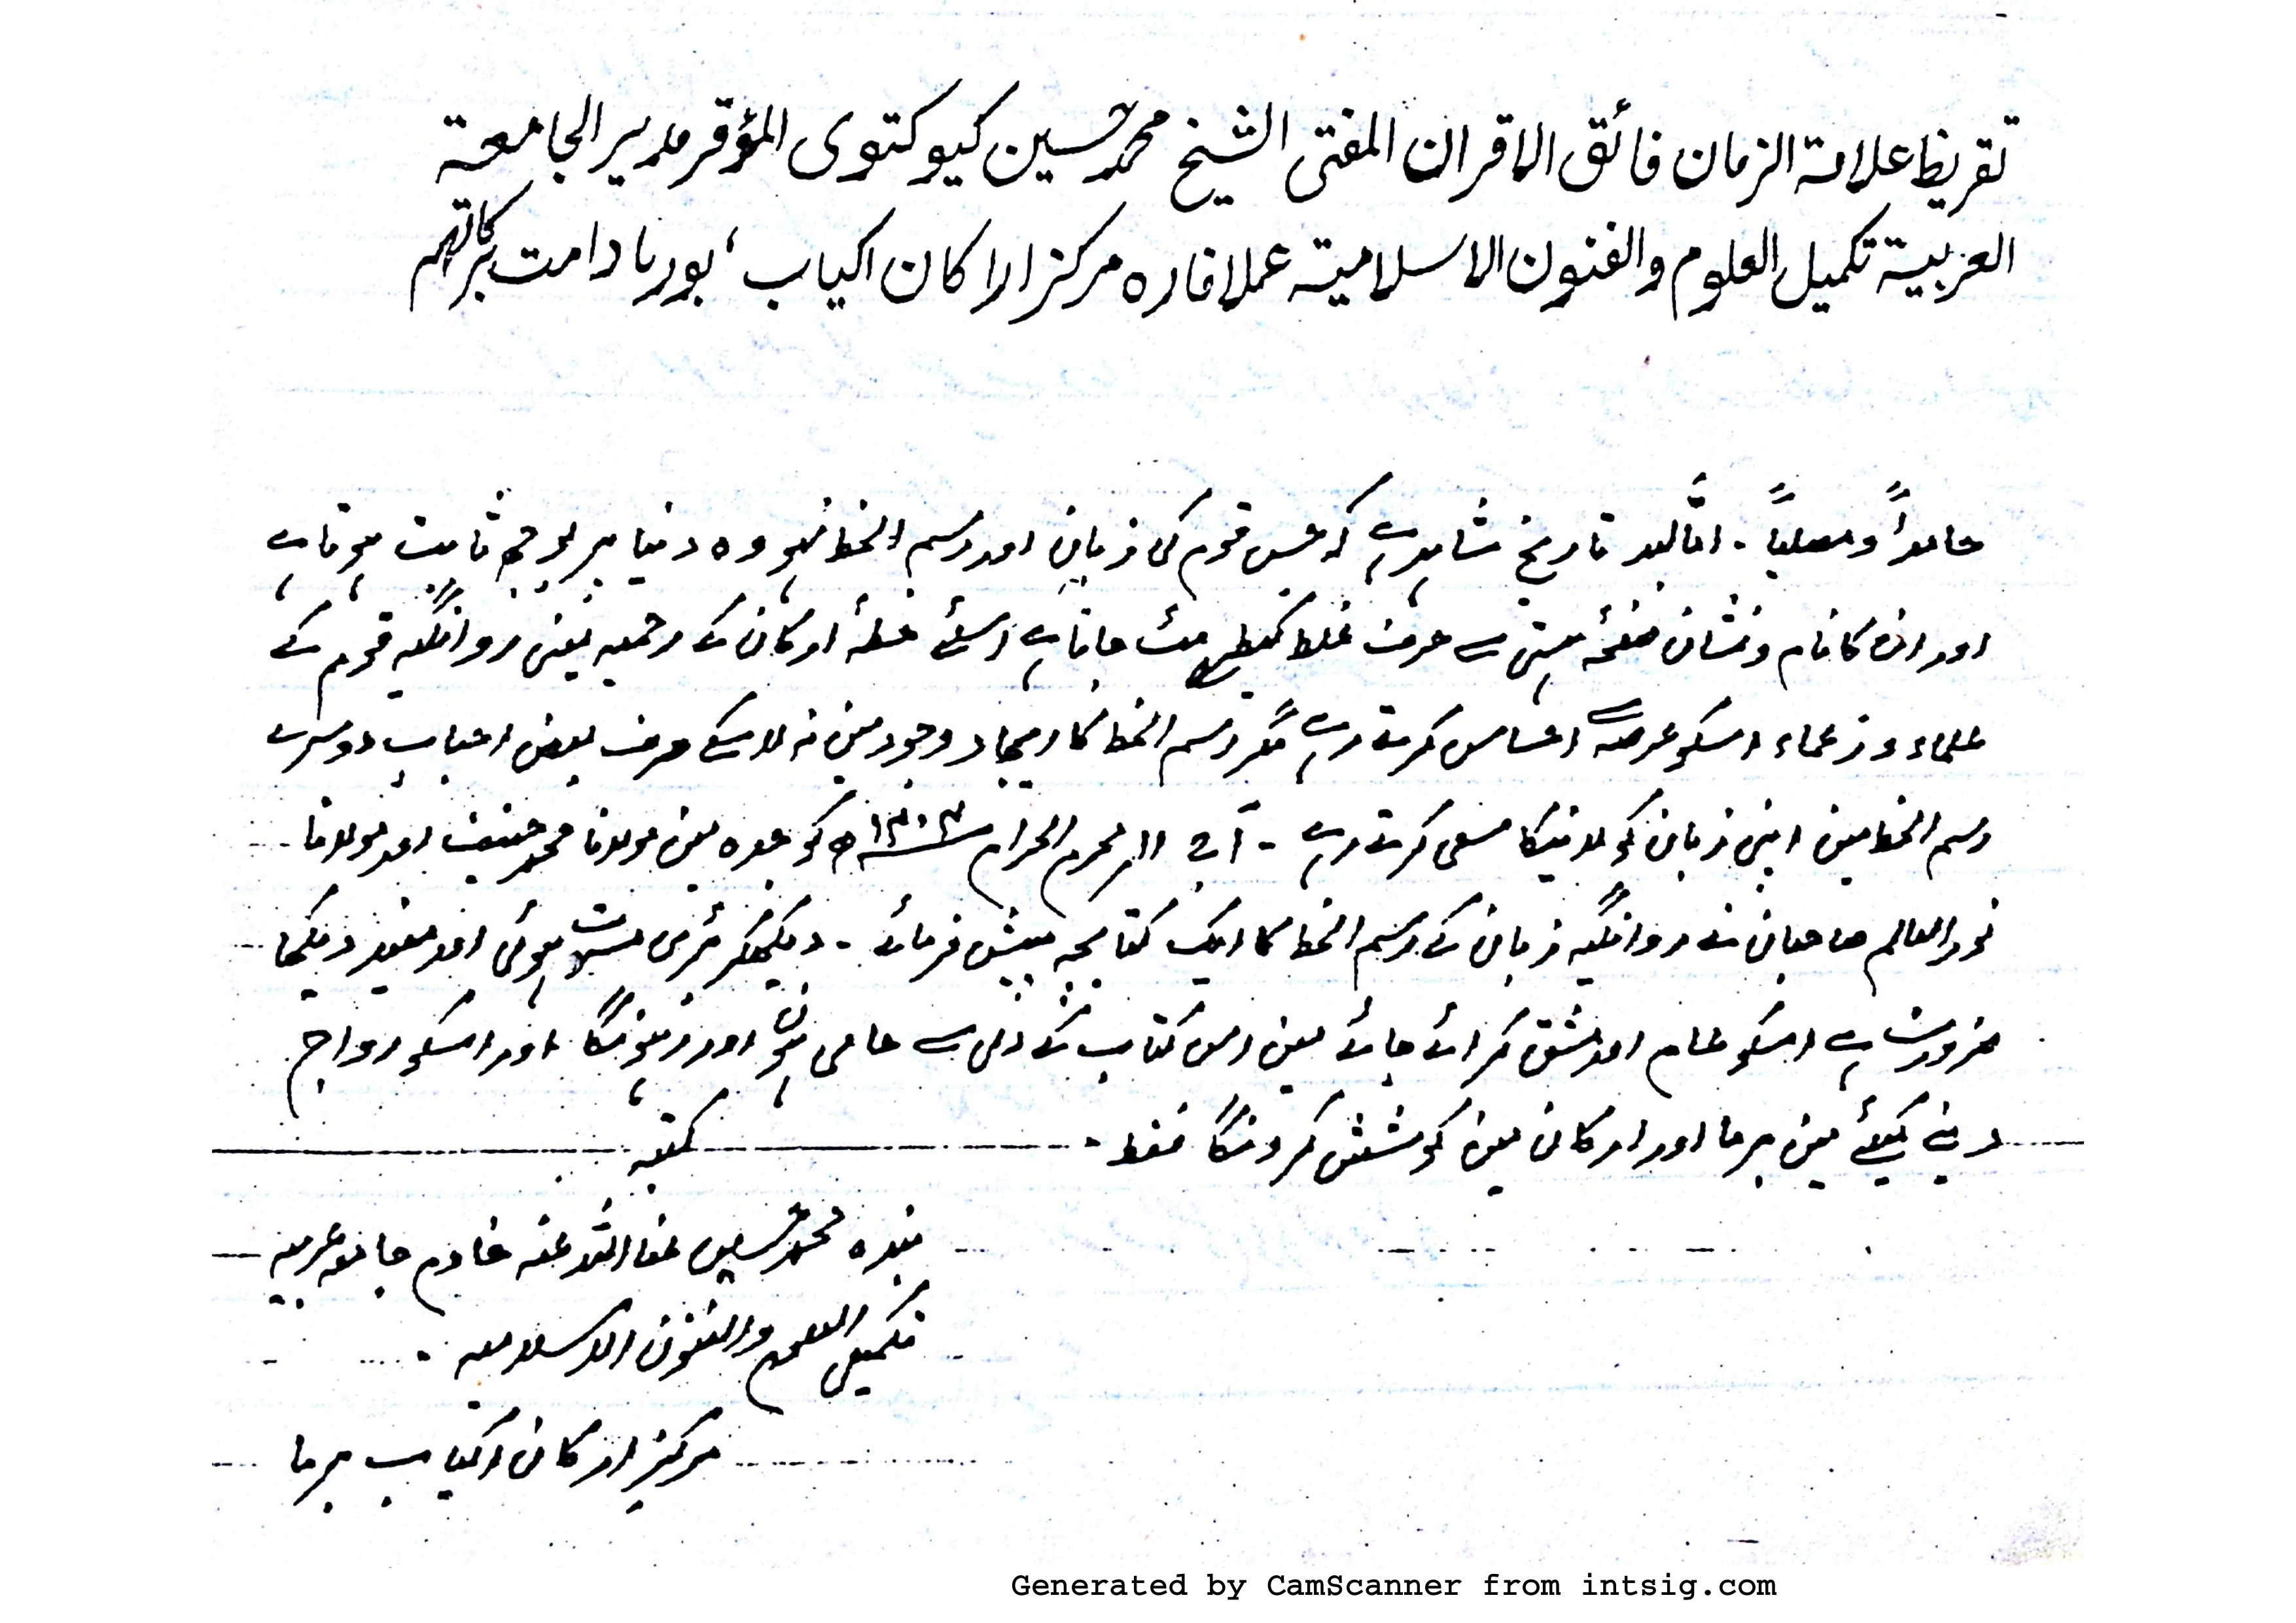 تقريظ علامة الزمان فائق الاقران المفتى الشيخ محمد حسين كيوكتوى المؤقر مدير الجامعة
العربية تكميل العلوم والفنون الاسلامية عملافاره مركز اراكان اكياب، بورما دامت بركاتهم
حامداً ومصلیاً ۔ امّا بعد تاریخ شاہد ہے کہ جس قوم کی زبان اور رسم الخط نہو وہ دنیا پر بوجھ ثابت ہوتا ہے
اور ان کا نام ونشان صفحۂ ہستی سے حرف غلط کیطرح مٹ جاتا ہے اسلئے خطۂ ارکان کے روہنگیہ قوم کے
علماء و زعماء اسکو عرصہ سے احساس کرتے رہے مگر رسم الخط کا ایجاد وجود مین نہ لاسکے صرف بعض احباب دوسرے
رسم الخط مین اپنی زبان کو لانیکا سعی کرتے رہے ۔ آج ١١ محرم الحرام ١٤٠٣ھ کو جدہ مین مولانا محمد حنیف اور مولانا
نور العالم صاحبان نے روانگیہ زبان کے رسم الخط کا ایک کتابچہ پیش فرمائے ۔ دیکھکر بڑی مسرت ہوئی اور مفید دیکھا
ضرورت ہے اسکو عام اور مشق کرائے جائے مین اس کتاب کے دل سے حامی ہوں اور رہونگا اور اسکو رواج
دینے کیلئے مین برما اور ارکان مین کوشش کرونگا فقط ۔
کتبہ
بندہ محمد حسین عفا اللہ عنہ خادم جامعہ عربیہ
تکمیل العلوم والفنون الاسلامیہ ۔
مرکز ارکان اکیاب برما
Generated by CamScanner from intsig.com